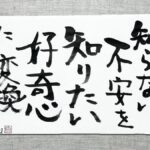 知らない
不安を
知りたい
好奇心
に変換